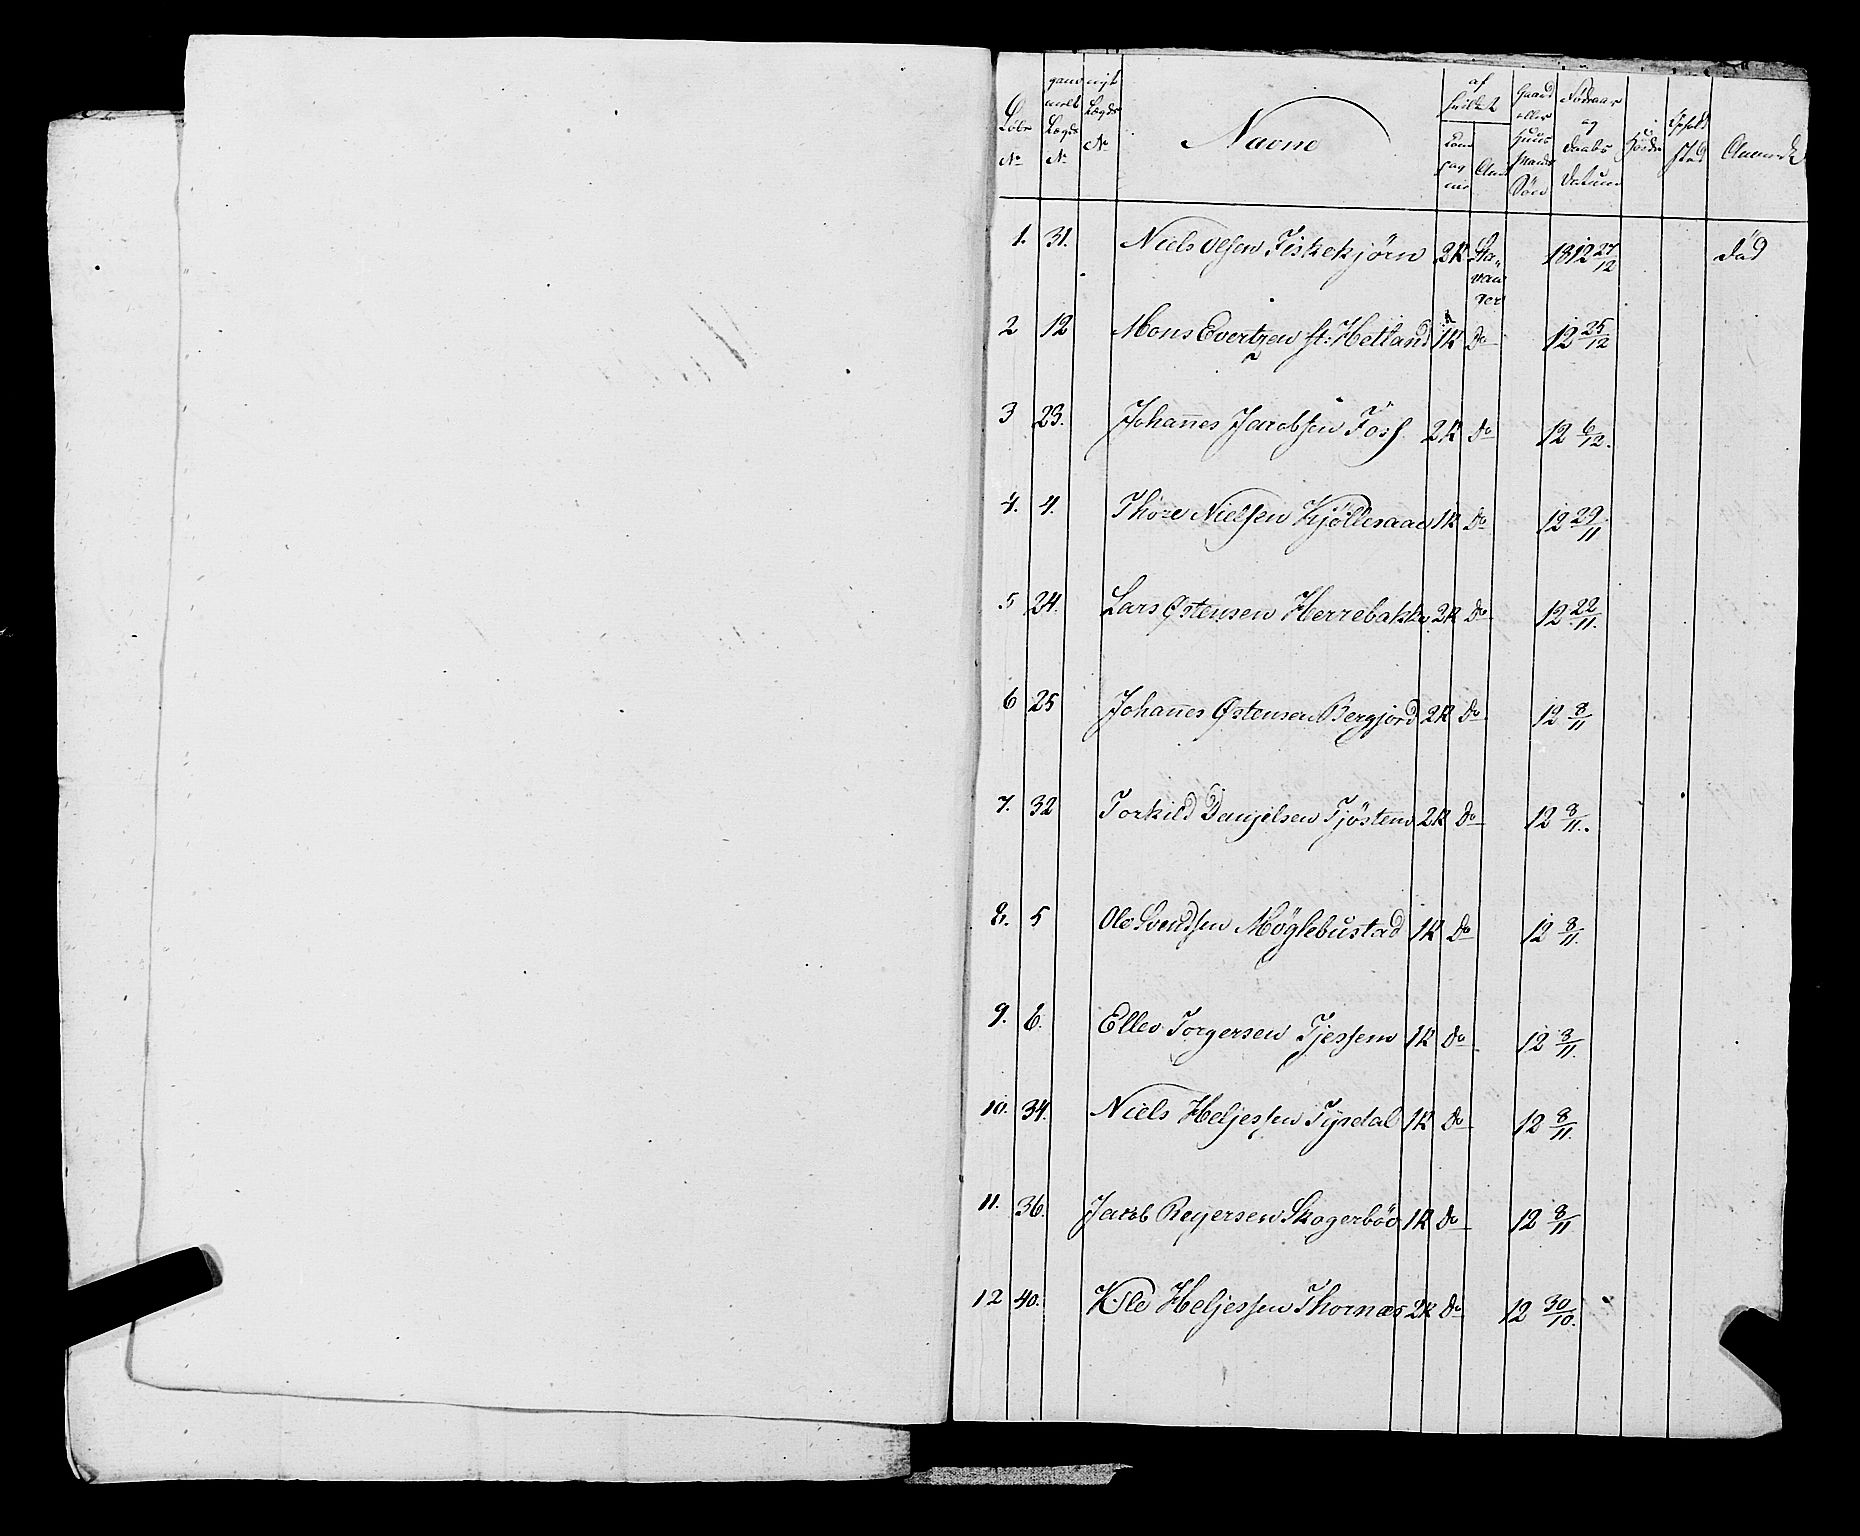 Löbe No | gammelt Lægds No | nyt Lægds No | Navne | af hvilket Compagnie | Amt | Gaard eller Huusmands Sön | Födeaar og Daabs Datum | Høide | Opholdssted | Anmærk
1. 31. Niels Olsen Fiskekjörn 2K Stavanger 1812 27/12 död
2 12 Mons Evertzen st: Hetland 1K Do 12 25/12
3 23. Johannes Jacobsen Foss 2K Do 12 6/12.
4. 4. Thore Nielsen Kjölleraae 1K Do 12 29/11
5 24. Lars Østensen Herrebakke 2K Do 12 22/11.
6 25 Johannes Østensen Bergjord 2K Do 12 8/11
7. 32 Torkild Danjelsen Tjöstem 2K Do 12 8/11.
8. 5 Ole Svendsen Møglebustad 1K Do 12 8/11.
9. 6. Ellev Torgersen Tjessem 1K Do 12 8/11.
10. 34. Niels Heljessen Tysdal 1K Do 12 8/11.
11. 36. Jacob Reyersen Skogerböe 1K Do 12 8/11
12 40. Heljessen Thornæs 2K Do 12 30/10.